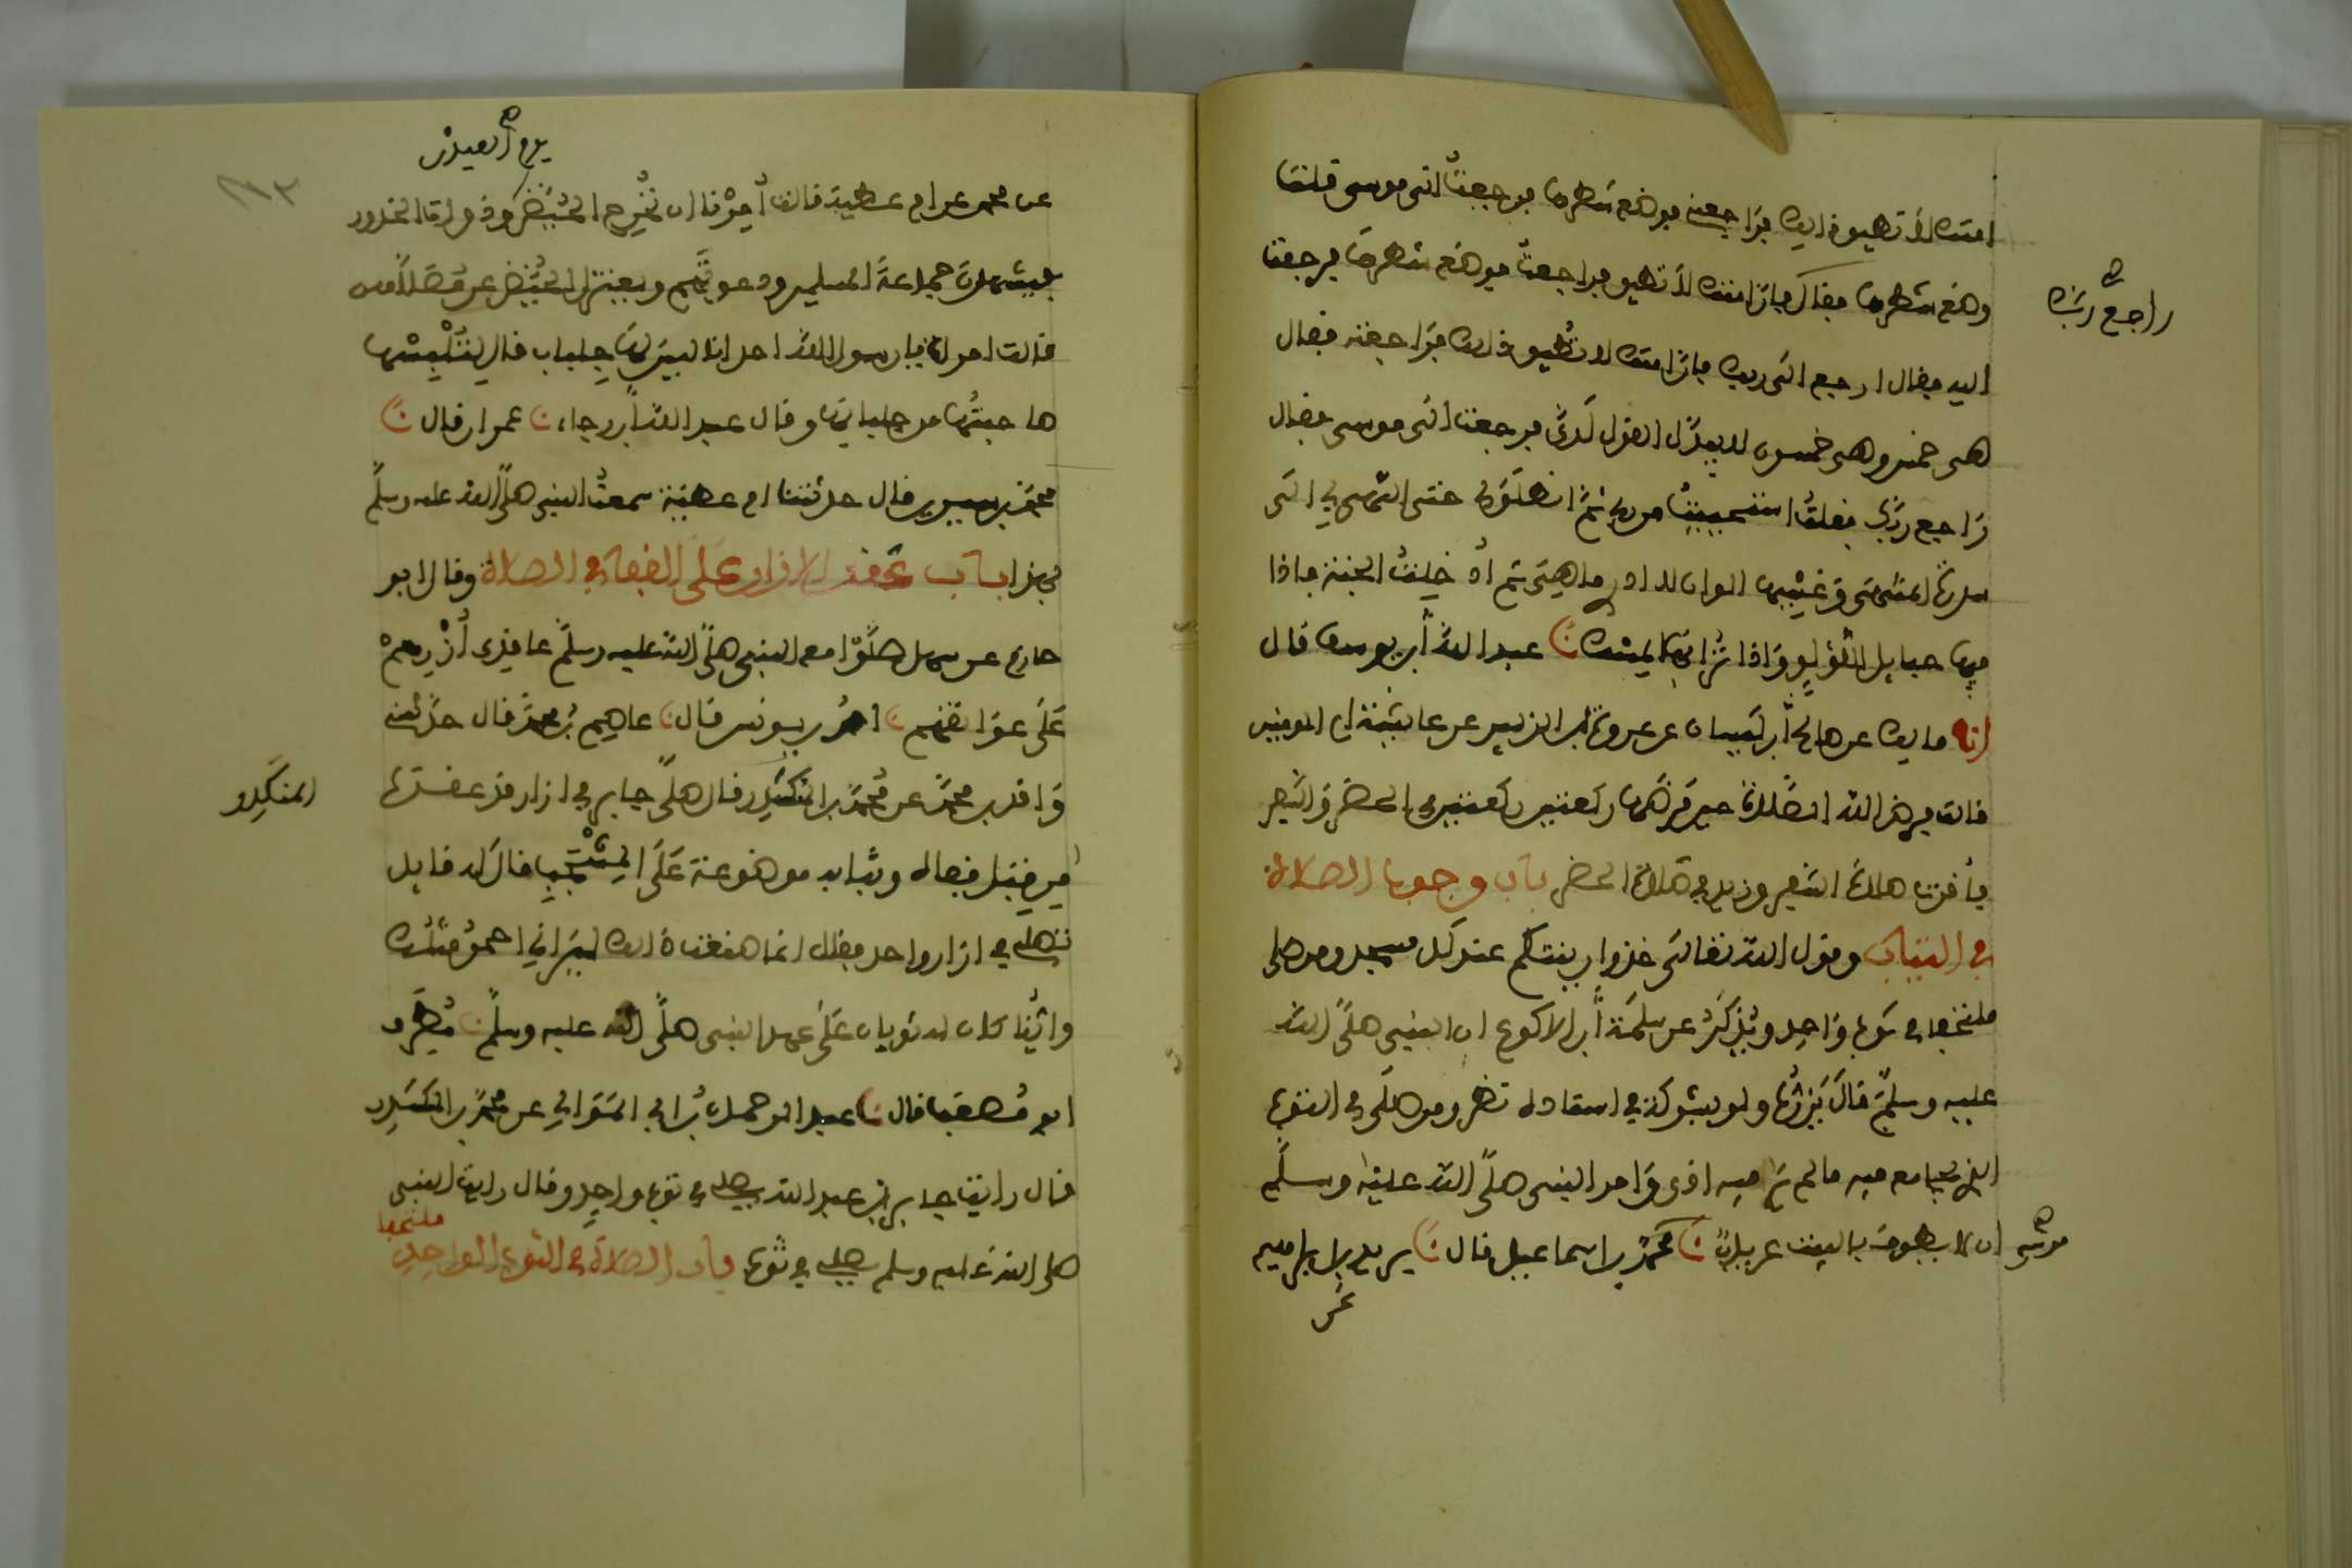 امتك لا تطيق ذلك فراجعته فوضع شطرها فرجعت الى موسى قلت
وضع شطرها فقال فان امتك لا تطيق فراجعت فوضع شطرها فرجعت
راجع ربك
اليه فقال ارجع الى ربك فان امتك لا تطيق ذلك فراجعته فقال
هى خمس وهى خمسون لا يبدل القول لدى فرجعت الى موسى فقال
راجع ربك فقلت استحييت من ربى ثم انطلق بى حتى انتهى بى الى
سدرة المنتهى وغشيها الوان لا ادرى ما هى ثم ادخلت الجنة فاذا
فيها حبايل اللؤلؤ واذا ترابها المسك نا عبد الله بن يوسف قال
انا مالك عن صالح بن كيسان عن عروة بن الزبير عن عائشة ام المومنين
قالت فرض الله الصلاة حين فرضها ركعتين ركعتين فى الحضر والسفر
فأقرت صلاة السفر وزيد فى صلاة الحضر باب وجوب الصلاة
فى الثياب وقول الله تعالى خذوا زينتكم عند كل مسجد ومن صلى
ملتحفا فى ثوب واحد ويذكر عن سلمة بن الاكوع ان النبى صلى الله
عليه وسلم قال يزره ولو بشوكة فى اسناده نظر ومن صلى فى الثوب
الذى يجامع فيه ما لم ير فيه اذى وامر النبى صلى الله عليه وسلم
ان لا يطوف بالبيت عريان نا محمد بن اسماعيل قال نا يزيد بن ابراهيم
عن
يوم العيدين
عن محمد عن ام عطية قالت أمرنا ان نخرج الحيض وذوات الخدور
فيشهدن جماعة المسلمين ودعوتهم ويعتزل الحيض عن مصلاهن
قالت امراة يا رسول الله احدانا ليس لها جلباب قال لتلبسها
صاحبتها من جلبابها وقال عبد الله بن رجاء نا عمران قال نا
محمد بن سيرين قال حدثتنا ام عطية سمعت النبى صلى الله عليه وسلم
بهذا باب عقد الازار على القفا فى الصلاة وقال ابو
حازم عن سهل صلوا مع النبى صلى الله عليه وسلم عاقدى أزرهم
على عواتقهم نا احمد بن يونس قال نا عاصم بن محمد قال حدثنى
واقد بن محمد عن محمد بن المنكدر قال صلى جابر فى ازار قد عقده
المنكدر
من قبل قفاه وثيابه موضوعة على المشجب قال له قايل
تصلى فى ازار واحد فقال انما صنعت ذلك ليرانى احمق مثلك
واينا كان له ثوبان على عهد النبى صلى الله عليه وسلم نا مطرف
ابو مصعب قال نا عبد الرحمان بن ابى الموالى عن محمد بن المنكدر
قال رايت جابر بن عبد الله يصلى فى ثوب واحد وقال رايت النبى
صلى الله عليه وسلم يصلى فى ثوب باب الصلاة فى الثوب الواحد
ملتحفا